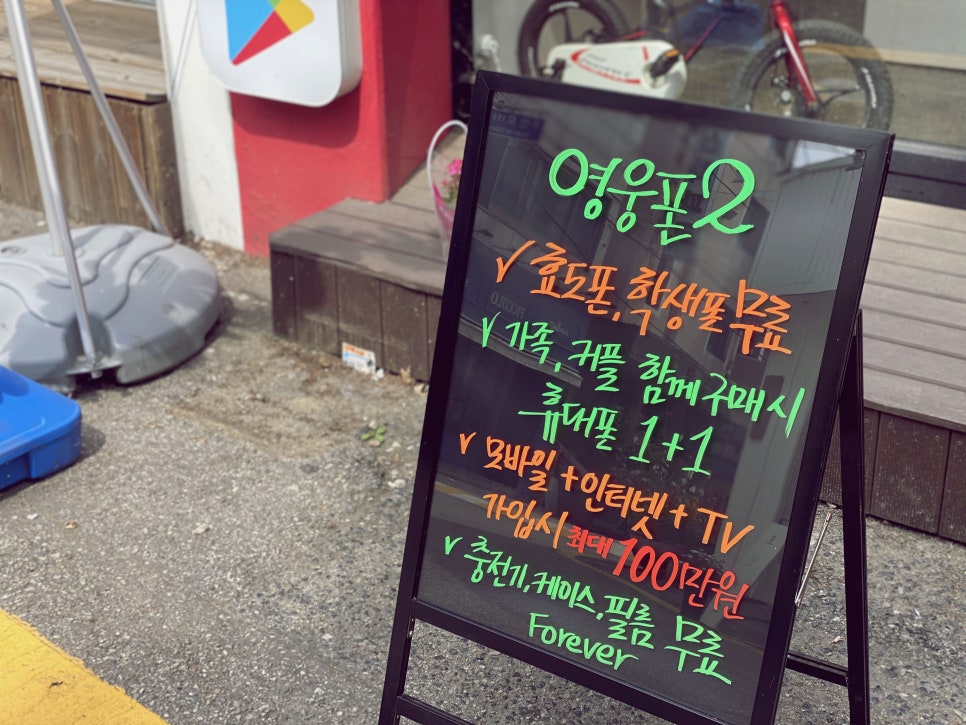 영웅폰2
✓ 효도폰, 학생폰 무료
✓ 가족, 커플 함께 구매시
휴대폰 1+1
✓ 모바일+인터넷+TV
가입시 최대 100만원
✓ 충전기, 케이스, 필름 무료
Forever